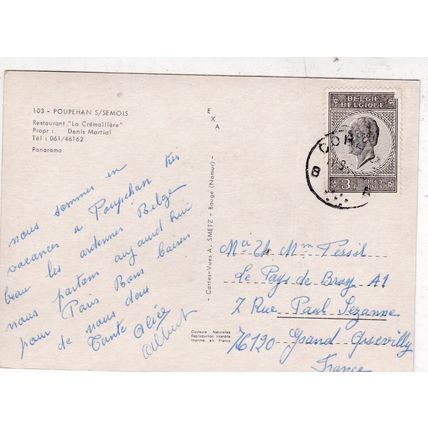 103 - POUPEHAN S/SEMOIS
Restaurant "La Crémaillère"
Propr : Denis Martial
Tél : 061/46162
Panorama
nous sommes en
vacances a Poupehan très
beau les ardennes Belge
nous partons aujourd hui
pour Paris Bons baisers
de nous deux
Tante Alice
Albert
EXA
Cartes-Vues A. SMETZ - Bouge (Namur)
Couleurs Naturelles
Reproduction interdite
Imprimé en France
BELGIE
BELGIQUE
3F
Mr Et Mm Tessil
Le Pays de Bray A1
7 Rue Paul Sezanne
76120 Grand Quevilly
France